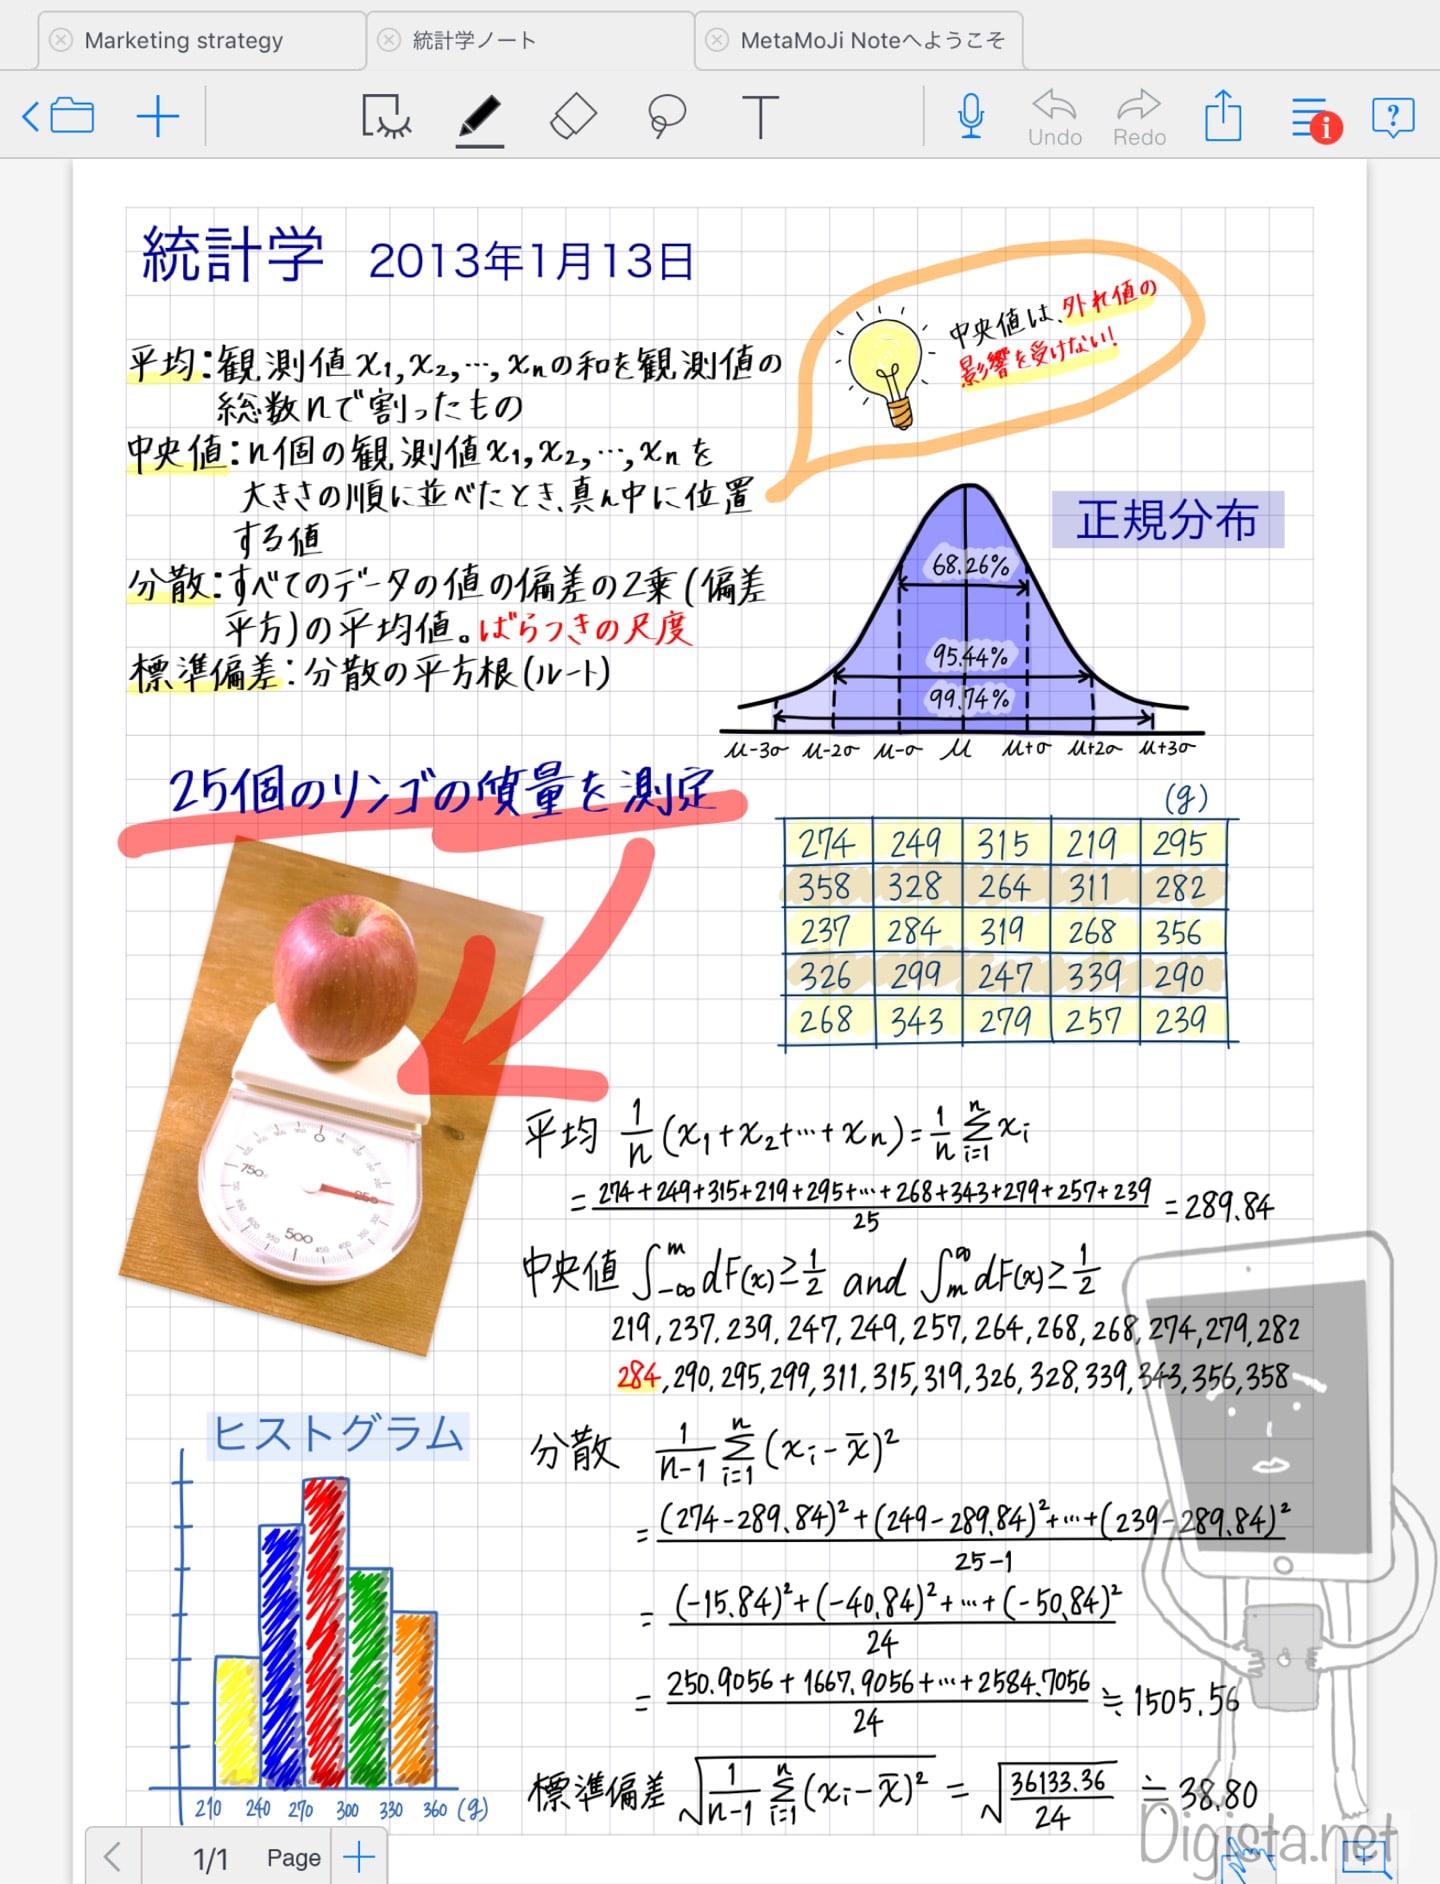 Marketing strategy
統計学ノート
MetaMoJi Noteへようこそ
Undo
Redo
統計学 2013年1月13日
中央値は、外れ値の
影響を受けない!
平均:観測値x₁,x₂,…,xₙの和を観測値の
総数nで割ったもの
中央値:n個の観測値x₁,x₂,…,xₙを
大きさの順に並べたとき、真ん中に位置
する値
分散:すべてのデータの値の偏差の2乗(偏差
平方)の平均値。ばらつきの尺度
標準偏差:分散の平方根(ルート)
正規分布
68.26%
95.44%
99.74%
μ-3σ μ-2σ μ-σ μ μ+σ μ+2σ μ+3σ
25個のリンゴの質量を測定
(g)
274 249 315 219 295
358 328 264 311 282
237 284 319 268 356
326 299 247 339 290
268 343 279 257 239
0
750
250
500
平均 1/n (x₁+x₂+…+xₙ)=1/n Σⁿᵢ₌₁ xᵢ
= 274+249+315+219+295+…+268+343+279+257+239 / 25 = 289.84
中央値 ∫₋∞ᵐ dF(x)≥1/2 and ∫ₘ^∞ dF(x)≥1/2
219,237,239,247,249,257,264,268,268,274,279,282
284,290,295,299,311,315,319,326,328,339,343,356,358
分散 1/(n-1) Σⁿᵢ₌₁ (xᵢ-x̄)²
= (274-289.84)²+(249-289.84)²+…+(239-289.84)² / 25-1
= (-15.84)²+(-40.84)²+…+(-50.84)² / 24
= 250.9056+1667.9056+…+2584.7056 / 24 ≒ 1505.56
標準偏差 √(1/(n-1) Σⁿᵢ₌₁ (xᵢ-x̄)²) = √(36133.36/24) ≒ 38.80
ヒストグラム
210 240 270 300 330 360 (g)
Digista.net
1/1 Page